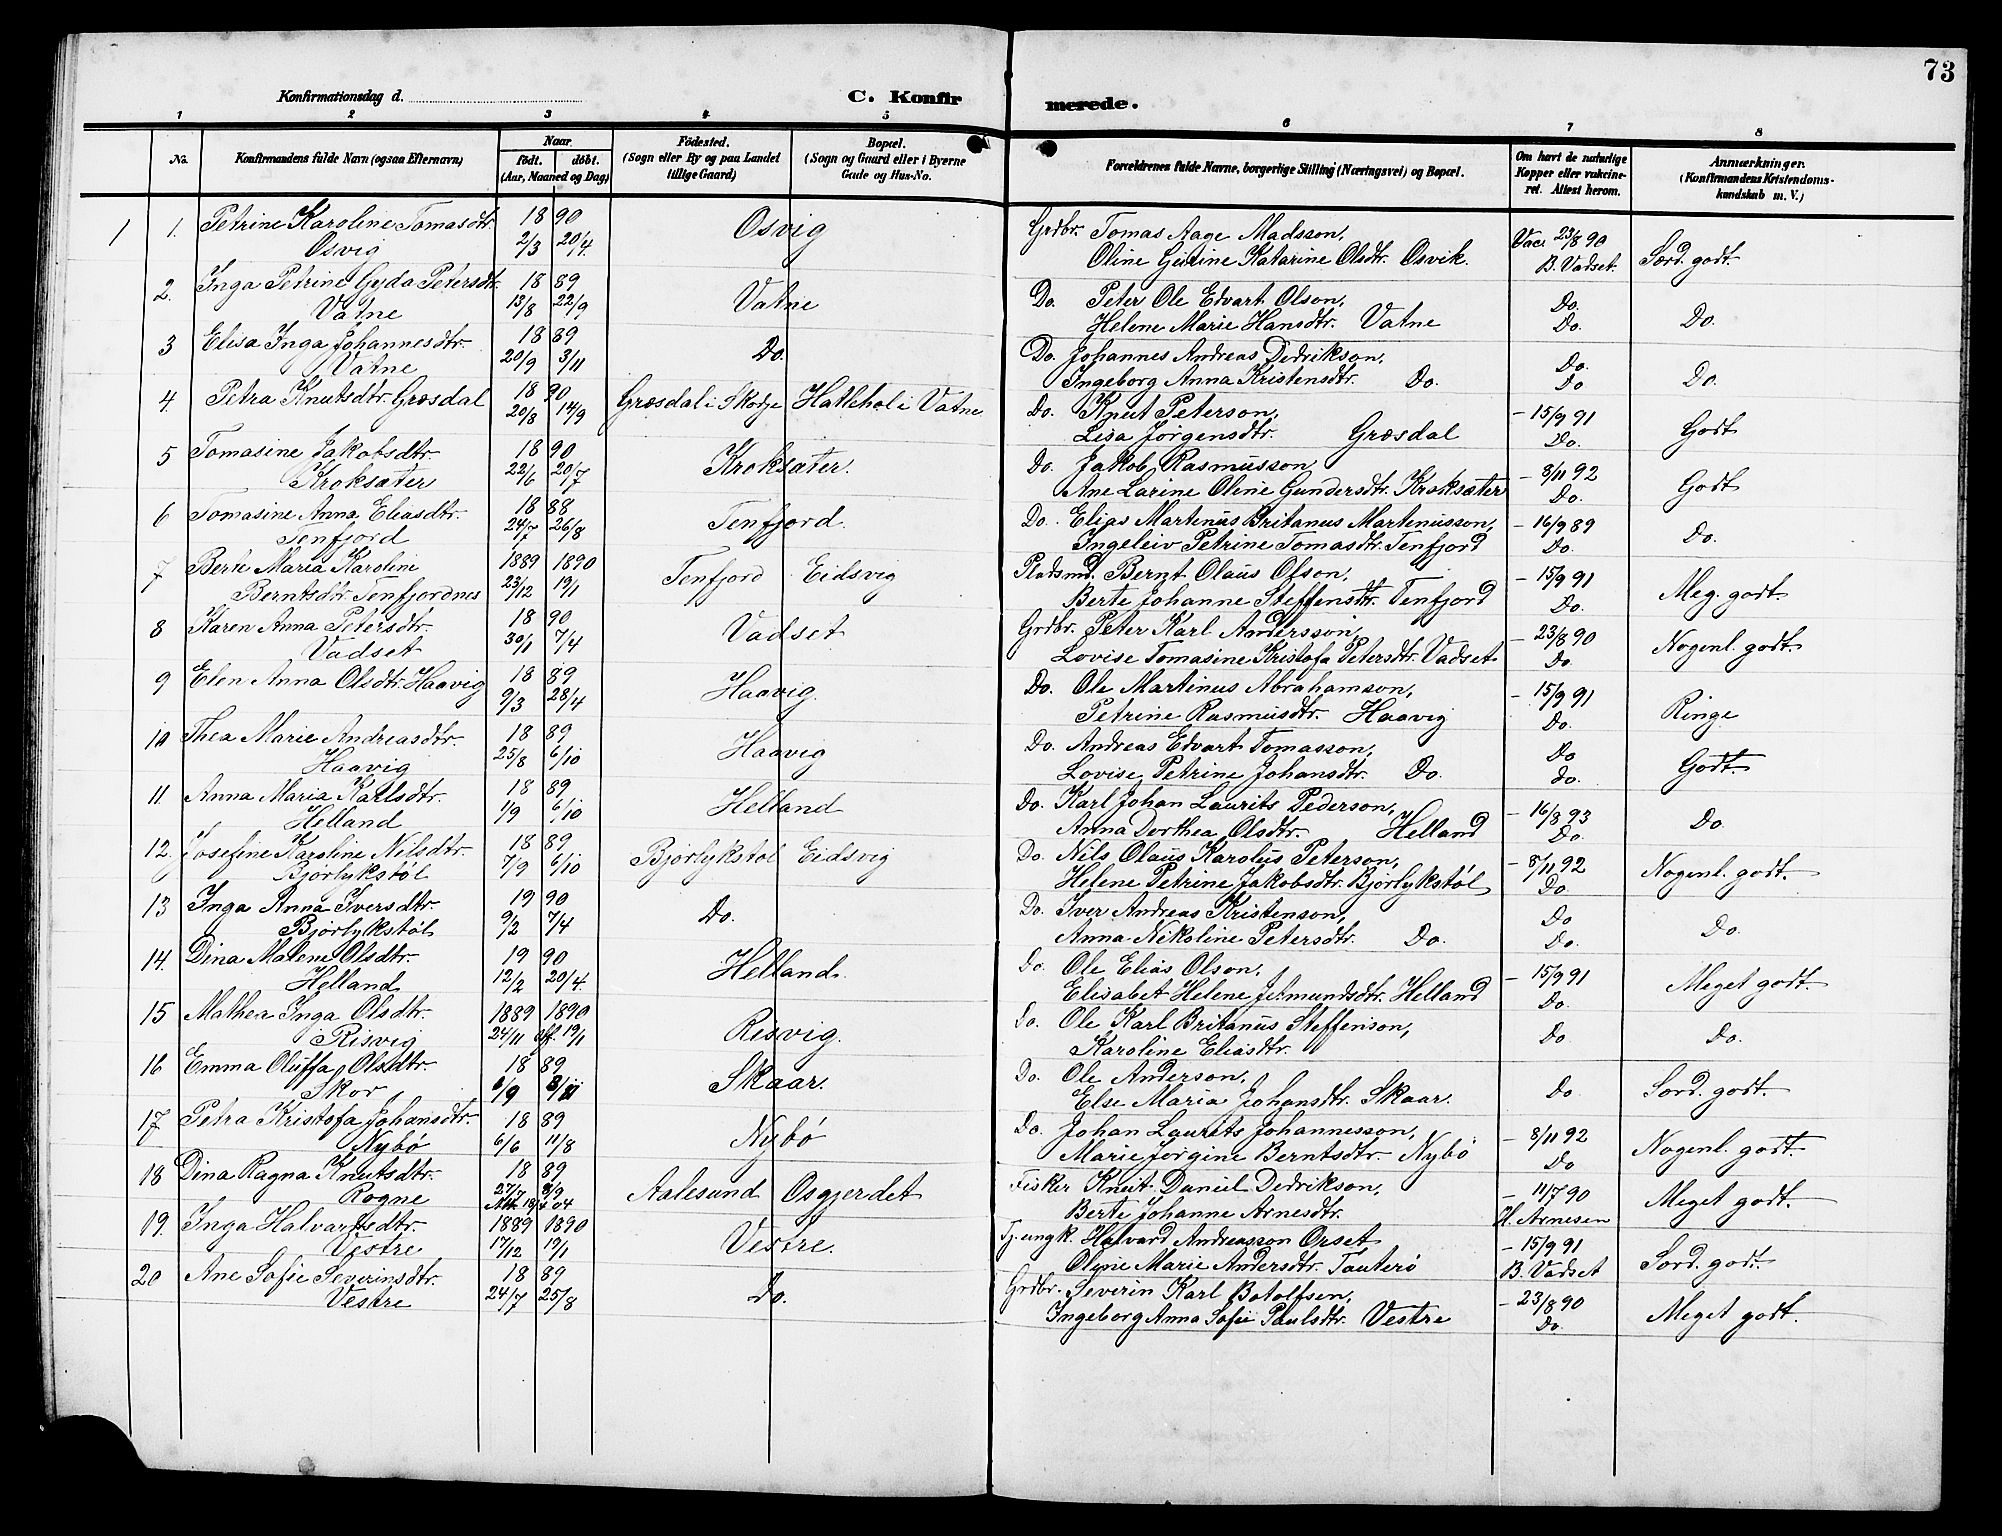 73
Konfirmationsdag d.
C. Konfirmerede.
1 2 3 4 5 6 7 8
No. Konfirmandens fulde Navn (ogsaa Efternavn) Naar født. døbt. (Aar, Maaned og Dag) Fødested. (Sogn eller By og paa Landet tillige Gaard) Bopæl. (Sogn og Gaard eller i Byerne Gade og Hus-No. Forældrenes fulde Navne, borgerlige Stilling (Næringsvei) og Bopæl. Om havt de naturlige Kopper eller vakcineret. Attest herom. Anmærkninger. (Konfirmandens Kristendomskundskab m. V.)
1 1. Petrine Karoline Tomasdtr. 18 90 Osvig Grdbr. Tomas Aage Madsson, Vac. 23/8 90 Særd. godt.
Osvig 2/3 20/4 Oline Gurine Katarine Olsdtr. Osvik. B. Vadset.
2. Inga Petrine Gyda Petersdtr. 18 89 Vatne Do. Peter Ole Edvart Olson, Do. Do.
Vatne 13/8 22/9 Helene Marie Hansdtr. Vatne Do.
3 Elisa Inga Johannesdtr. 18 89 Do. Do. Johannes Andreas Dedrikson, Do. Do.
Vatne 20/9 3/11 Ingeborg Anna Kristensdtr. Do. Do
4. Petra Knutsdtr. Græsdal 18 90 Græsdal i Skodje Hattehol i Vatne Do. Knut Peterson, – 15/9 91 Godt
20/8 14/9 Lisa Jørgensdtr. Græsdal Do.
5 Tomasine Jakobsdtr. 18 90 Kroksæter. Do. Jakob Rasmusson, – 8/11 92 Godt
Kroksæter 22/6 20/7 Ane Larine Oline Gundersdtr. Kroksæter Do.
6 Tomasine Anna Eliasdtr. 18 88 Tenfjord. Do. Elias Martenus Britanus Martenusson, – 16/9 89 Do.
Tenfjord 24/7 26/8 Ingeleiv Petrine Tomasdtr. Tenfjord Do.
7 Berte Maria Karoline 1889 1890 Tenfjord Eidsvig Pladsmd. Bernt Olaus Olson, – 15/9 91 Meg. godt.
Berntsdtr. Tenfjordnes 23/12 19/1 Berte Johanne Steffensdtr. Tenfjord Do.
8 Karen Anna Petersdtr. 18 90 Vadset Grdbr. Peter Karl Andersson, – 23/8 90 Nogenl. godt.
Vadset 30/1 7/4 Lovise Tomasine Kristofa Petersdtr. Vadset Do.
9 Elen Anna Olsdtr. Haavig 18 89 Haavig. Do. Ole Martinus Abrahamson, – 15/9 91 Ringe
9/3 28/4 Petrine Rasmusdtr. Haavig Do.
10 Thea Marie Andreasdtr. 18 89 Haavig Do. Andreas Edvart Tomasson, Do Godt.
Haavig 25/8 6/10 Lovise Petrine Johansdtr. Do. Do.
11 Anna Maria Karlsdtr. 18 89 Helland Do. Karl Johan Laurits Pederson, – 16/8 93 Do.
Helland 1/9 6/10 Anna Dorthea Olsdtr. Helland Do.
12. Josefine Karoline Nilsdtr. 18 89 Bjørlykstøl Eidsvig Do. Nils Olaus Karolus Peterson, – 8/11 92 Nogenl. godt.
Bjørlykstøl 7/9 6/10 Helene Petrine Jakobsdtr. Bjørlykstøl Do.
13 Inga Anna Iversdtr. 19 90 Do. Do. Iver Andreas Kristenson, Do Do.
Bjørlykstøl 9/2 7/4 Anna Nikoline Petersdtr. Do. Do.
14. Dina Malene Olsdtr. 19 90 Helland. Do. Ole Elias Olson, – 15/9 91 Meget godt.
Helland 12/2 20/4 Elisabet Helene Jetmundsdtr. Helland Do.
15 Mathea Inga Olsdtr. 1889 1890 Risvig. Do. Ole Karl Britanus Steffenson, Do Do.
Risvig 24/11 19/1 Karoline Eliasdtr.
16 Emma Oluffa Olsdtr. 18 89 Skaar. Do. Ole Anderson, Do Særd. godt.
Skor 6/9 3/11 Else Maria Johansdtr. Skaar.
17 Petra Kristofa Johansdtr. 18 89 Nybø Do. Johan Laurits Johannesson, – 8/11 92 Nogenl. godt.
Nybø 6/6 11/8 Marie Jørgine Berntsdtr. Nybø Do
18 Dina Ragna Knutsdtr. 18 89 Aalesund Osgjerdet Fisker Knut Daniel Dedrikson, – 11/7 90 Meget godt.
Rogne 27/7 Berte Johanne Arnesdtr. H. Arnesen
19. Inga Halvardsdtr. 1889 1890 Vestre. Tj. ungk. Halvard Andreasson Orset – 15/9 91 Særd. godt.
Vestre 17/12 19/1 Oline Marie Andersdtr. Tauterø B. Vadset
20 Ane Sofie Severinsdtr. 18 89 Do. Grdbr. Severin Karl Botolfsen, – 23/8 90 Meget godt.
Vestre 24/7 25/8 Ingeborg Anna Sofie Paulsdtr. Vestre Do.